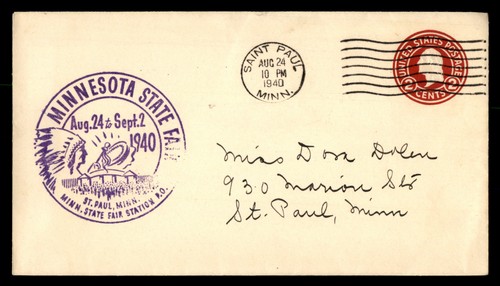 SAINT PAUL
AUG 24
10 PM
1940
MINN.
UNITED STATES POSTAGE
2 CENTS 2
MINNESOTA STATE FAIR
Aug. 24 to Sept. 2
1940
ST. PAUL, MINN.
MINN. STATE FAIR STATION P.O.
Miss Dora Dolen
930 Marion St
St. Paul, Minn